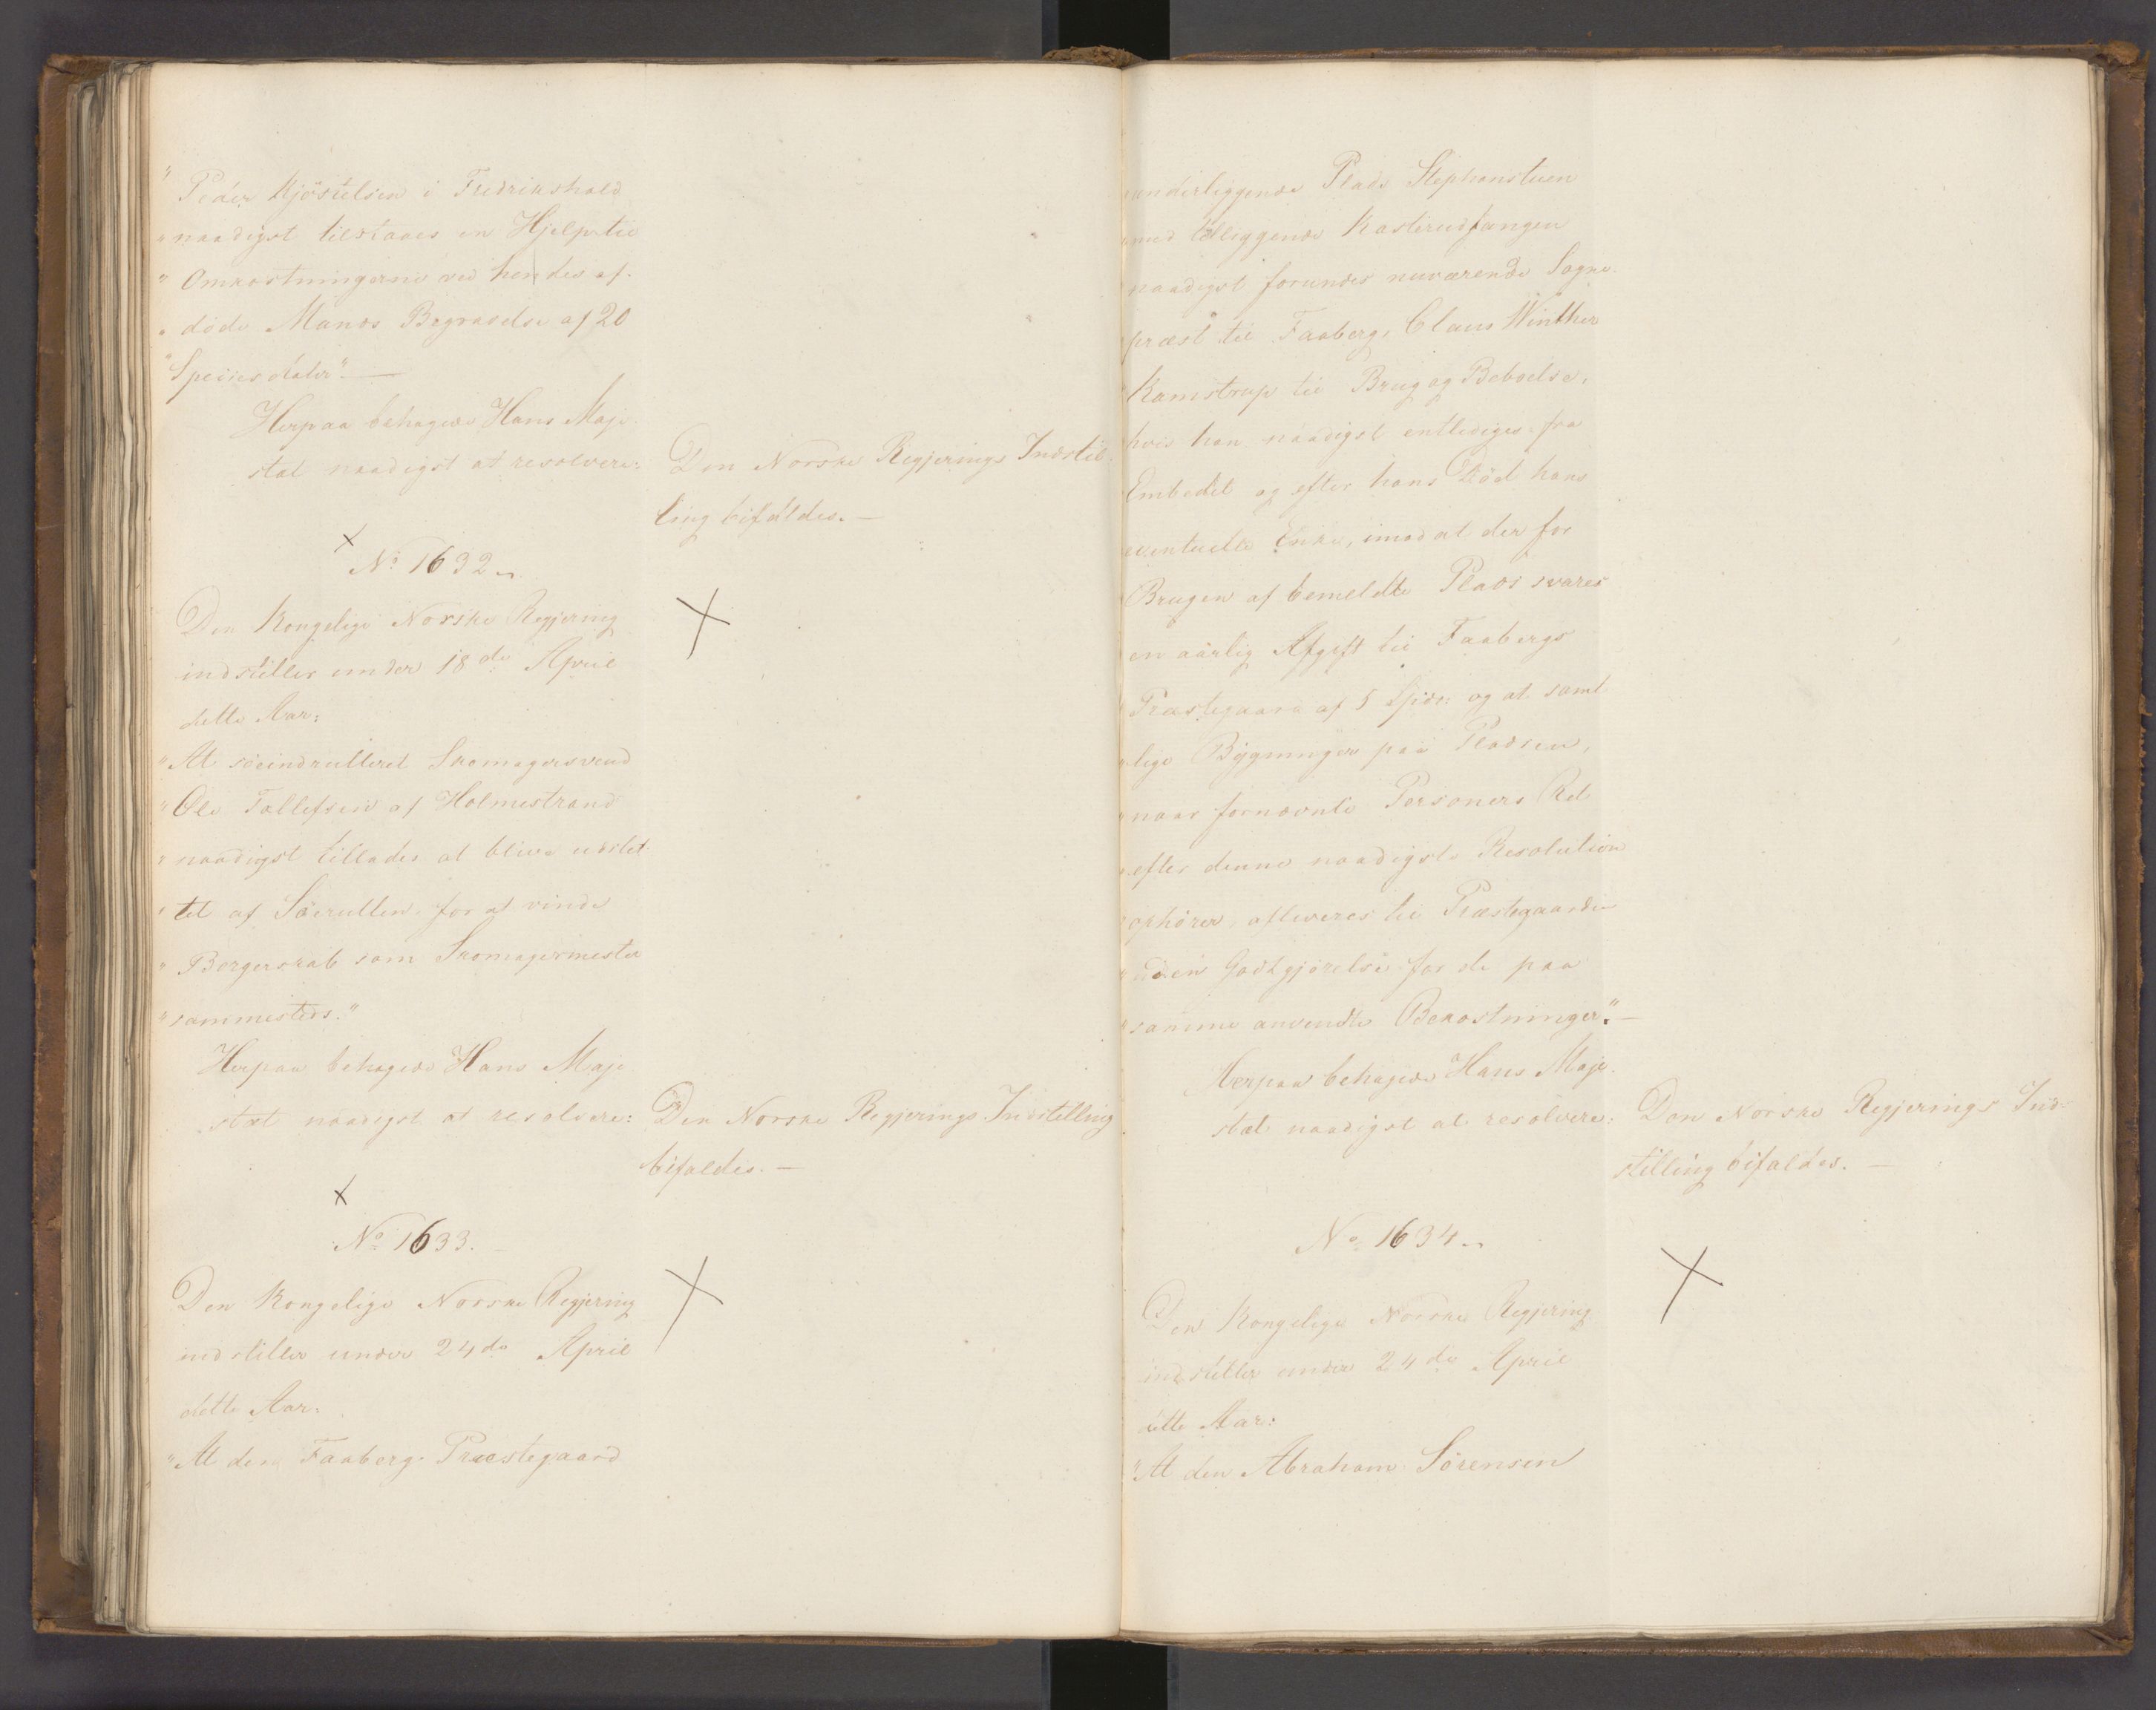 "Peder Kjöstelsen i Fredrikshald
"naadigst tilstaaes en Hjelp til
"Omkostningerne ved hendes af-
"døde Mands Begravelse af 20
"Speciesdaler". —
Herpaa behagede Hans Maje-
stæt naadigst at resolvere:
Den Norske Regjerings Indstil-
ling bifaldes. —
No 1632.
Den Kongelige Norske Regjering
indstiller under 18de April
dette Aar:
"At söeindrulleret Skomagersvend
"Ole Tollefsen af Holmestrand
"naadigst tillades at blive udslet-
"tet af Söerullen for at vinde
"Borgerskab som Skomagermester
"sammesteds."
Herpaa behagede Hans Maje-
stæt naadigst at resolvere:
Den Norske Regjerings Indstilling
bifaldes. —
No 1633.
Den Kongelige Norske Regjering
indstiller under 24de April
dette Aar:
"At den Faaberg Præstegaard
"underliggende Plads Stephanstuen
"med tilliggende Kasterudfangen
"naadigst forundes nuværende Sogne-
"præst til Faaberg, Claus Winther
"Kamstrup til Brug og Beboelse,
"hvis han naadigst entlediges fra
"Embedet og efter hans Död hans
"eventuelle Enke, imod at der for
"Brugen af bemeldte Plads svares
"en aarlig Afgift til Faabergs
"Præstegaard af 5 Spdr: og at samt-
"lige Bygninger paa Pladsen,
"naar fornævnte Personers Ret
"efter denne naadigste Resolution
"ophörer, afleveres til Præstegaarden
"uden Godtgjörelse for de paa
"samme anvendte Bekostninger". —
Herpaa behagede Hans Maje-
stæt naadigst at resolvere:
Den Norske Regjerings Ind-
stilling bifaldes. —
No 1634.
Den Kongelige Norske Regjering
indstiller under 24de April
dette Aar:
"At den Abraham Sörensen